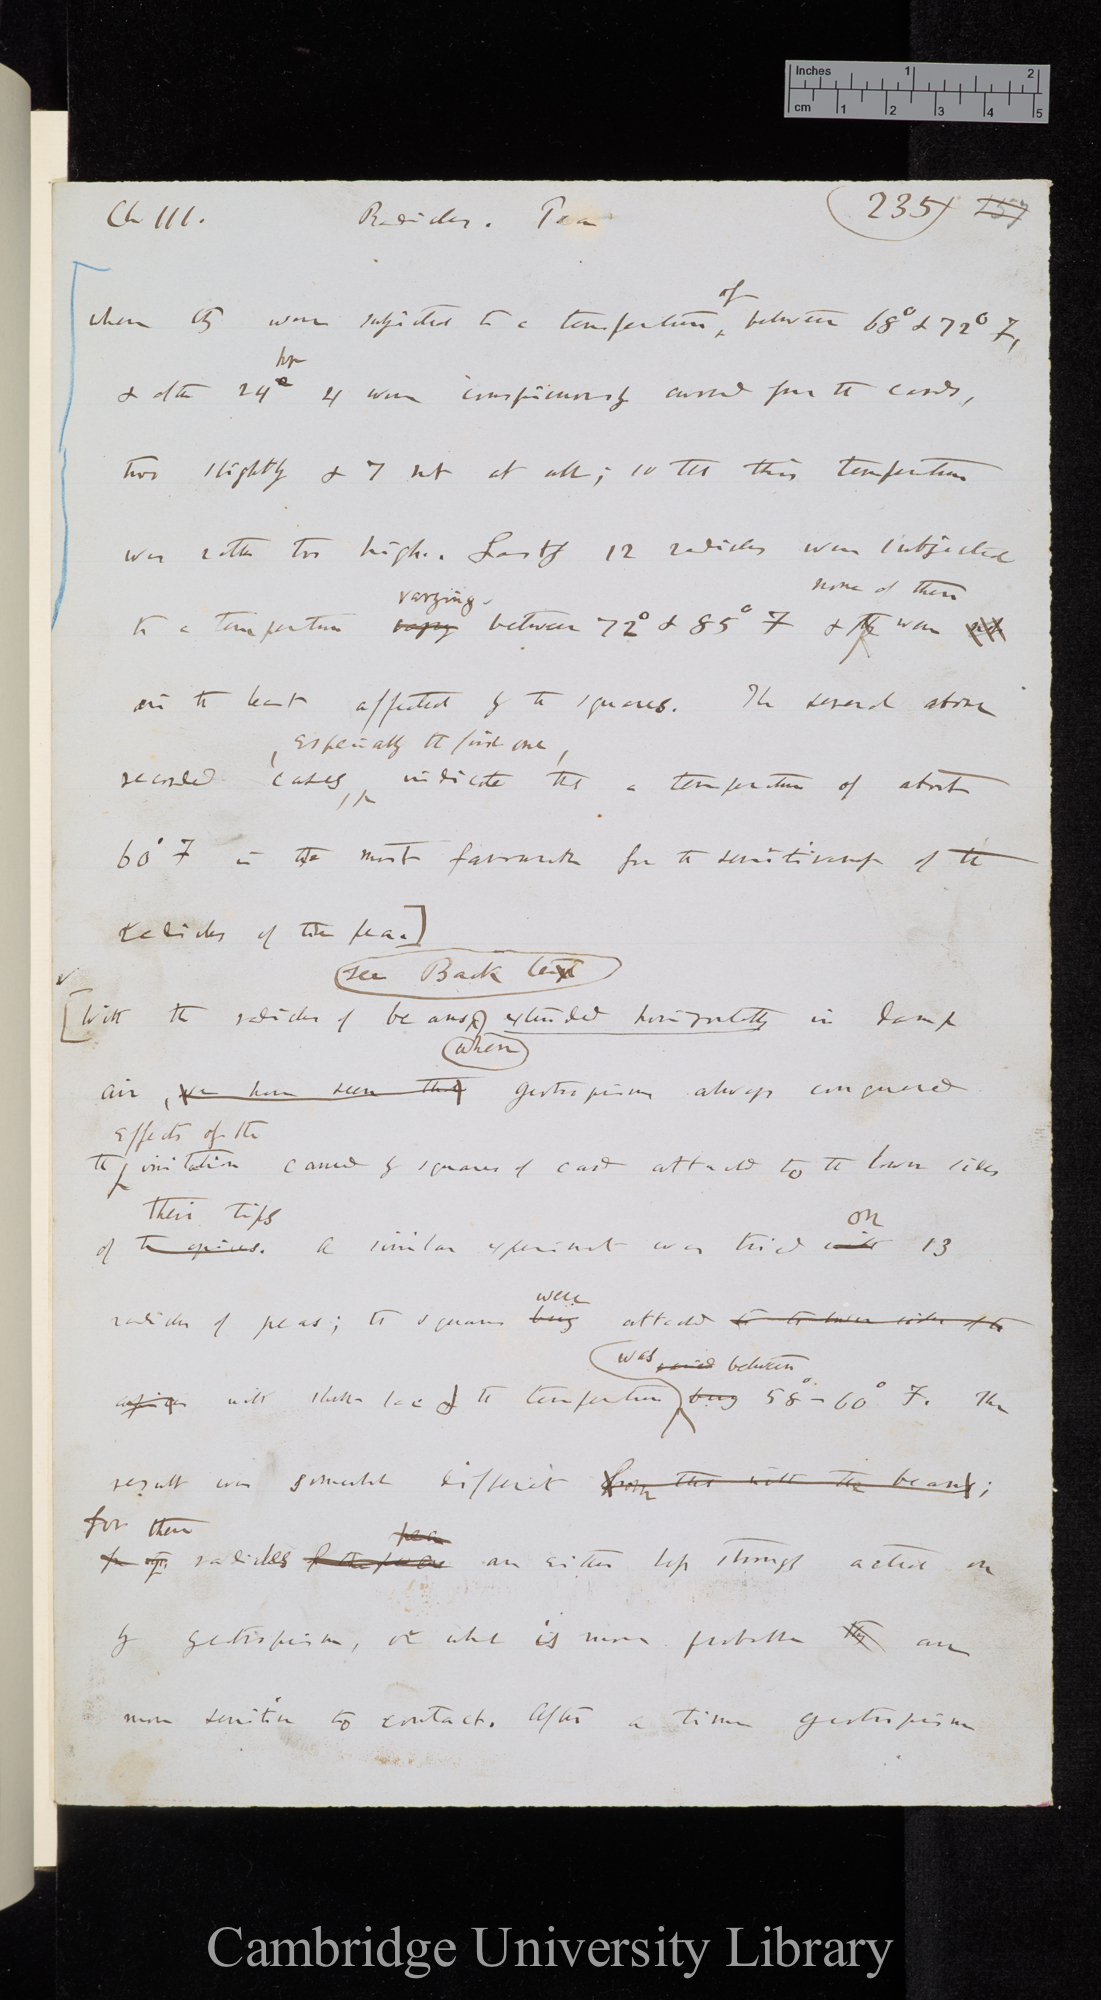 Inches 1 2
cm 1 2 3 4 5
Ch III. Radicles. Pea 235 157
of
when they were subjected to a temperature, between 68° & 72° F,
hrs
& after 24 4 were conspicuously curved from the cards,
two slightly & 7 not at all; so that this temperature
was rather too high. Lastly 12 radicles were subjected
varying none of them
to a temperature between 72° & 85° F & they were not
in the least affected by the squares. The several above
, especially the first one,
recorded cases, indicate that a temperature of about
60° F is the most favourable for the sensitiveness of the
radicles of the pea.]
see Back text
[With the radicles of beans extended horizontally in damp
when
air, we have seen that geotropism always conquered
effects of the
the irritation caused by squares of card attached to the lower sides
their tips on
of the apices. A similar experiment was tried with 13
were
radicles of peas; the squares being attached to the lower sides of the
was between
apices with shellac & the temperature being 58° – 60° F. The
result was somewhat different from that with the beans;
for these pea
for the radicles are either less strongly acted on
by geotropism, or what is more probable they are
more sensitive to contact. After a time geotropism
Cambridge University Library